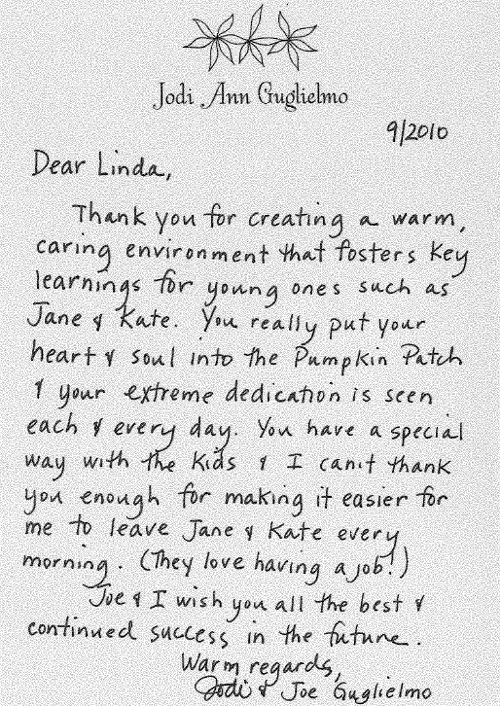 Jodi Ann Guglielmo
9/2010
Dear Linda,
Thank you for creating a warm,
caring environment that fosters key
learnings for young ones such as
Jane & Kate. You really put your
heart & soul into the Pumpkin Patch
& your extreme dedication is seen
each & every day. You have a special
way with the kids & I can't thank
you enough for making it easier for
me to leave Jane & Kate every
morning. (They love having a job!)
Joe & I wish you all the best &
continued success in the future.
Warm regards,
Jodi & Joe Guglielmo